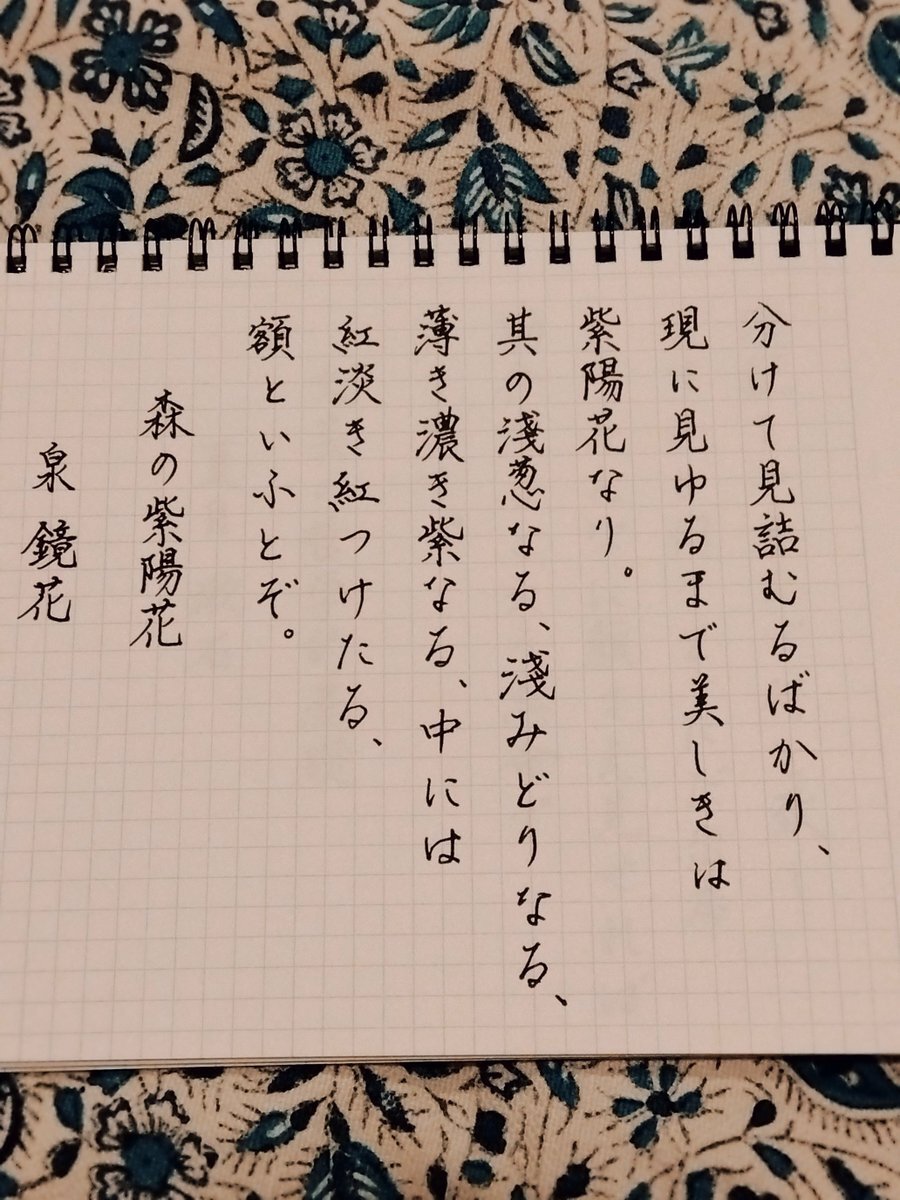 分けて見詰むるばかり、
現に見ゆるまで美しきは
紫陽花なり。
其の淺葱なる、淺みどりなる、
薄き濃き紫なる、中には
紅淡き紅つけたる、
額といふとぞ。
森の紫陽花
泉 鏡花